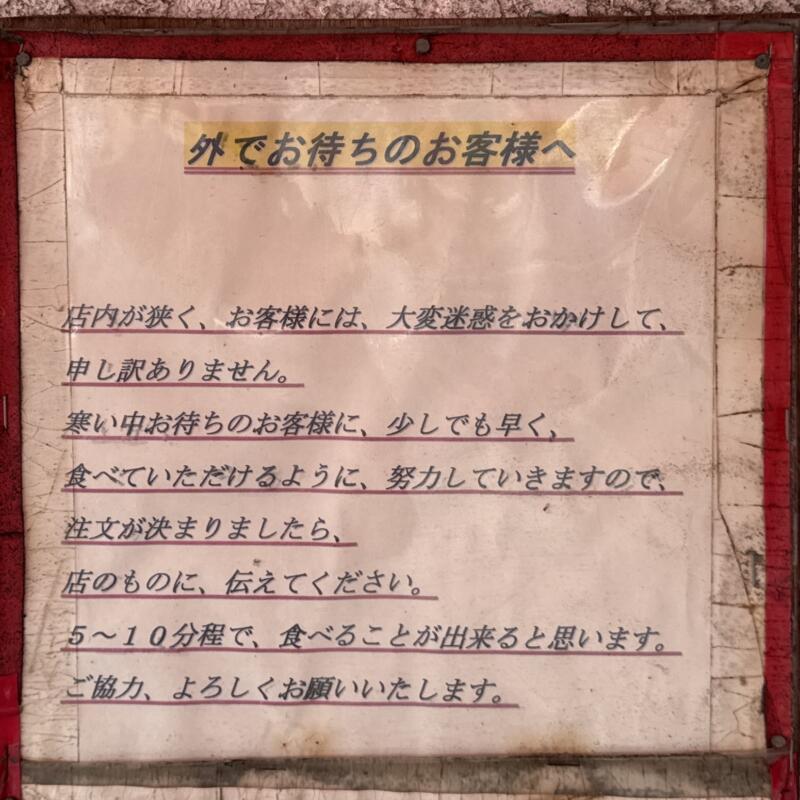 外でお待ちのお客様へ
店内が狭く、お客様には、大変迷惑をおかけして、
申し訳ありません。
寒い中お待ちのお客様に、少しでも早く、
食べていただけるように、努力していきますので、
注文が決まりましたら、
店のものに、伝えてください。
５～１０分程で、食べることが出来ると思います。
ご協力、よろしくお願いいたします。